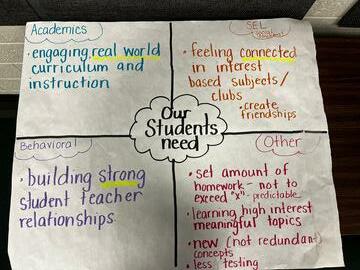 Academics
• engaging real world
curriculum and
instruction
SEL
• feeling connected
in interest
based subjects/
clubs
• create
friendships
Our
Students
need
Behavioral
• building strong
student teacher
relationships
Other
• set amount of
homework - not to
exceed "x" - predictable
• learning high interest
meaningful topics
• new (not redundant)
concepts
• less testing